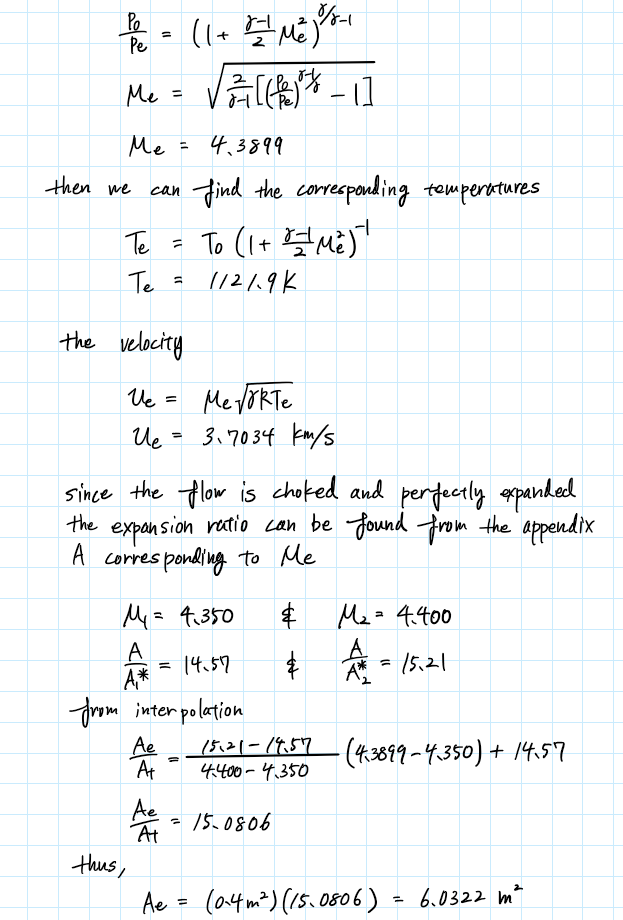 P₀/Pe = (1 + γ-1/2 Me²)^γ/γ-1
Me = √(2/γ-1 [(P₀/Pe)^γ-1/γ - 1])
Me = 4.3899
then we can find the corresponding temperatures
Te = T₀ (1 + γ-1/2 Me²)^-1
Te = 1121.9 K
the velocity
Ue = Me √γRTe
Ue = 3.7034 km/s
since the flow is choked and perfectly expanded
the expansion ratio can be found from the appendix
A corresponding to Me
M₁ = 4.350 & M₂ = 4.400
A/A₁* = 14.57 & A/A₂* = 15.21
from interpolation
Ae/At = 15.21-14.57/4.400-4.350 (4.3899-4.350) + 14.57
Ae/At = 15.0806
thus,
Ae = (0.4 m²)(15.0806) = 6.0322 m²